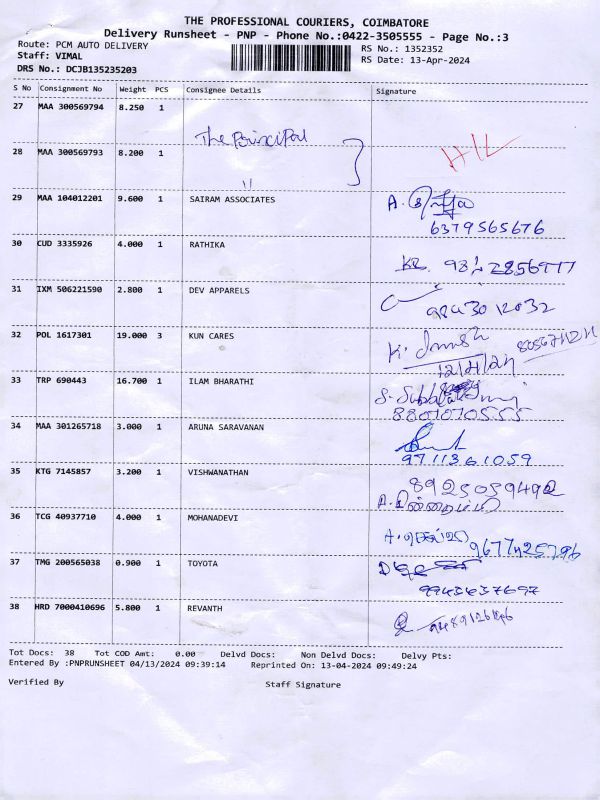 THE PROFESSIONAL COURIERS, COIMBATORE
Delivery Runsheet - PNP - Phone No.:0422-3505555 - Page No.:3
Route: PCM AUTO DELIVERY RS No.: 1352352
Staff: VIMAL RS Date: 13-Apr-2024
DRS No.: DCJB135235203
S No Consignment No Weight PCS Consignee Details Signature
27 MAA 300569794 8.250 1
The Principal
28 MAA 300569793 8.200 1
"
29 MAA 104012201 9.600 1 SAIRAM ASSOCIATES A.
6379565676
30 CUD 3335926 4.000 1 RATHIKA
31 IXM 506221590 2.800 1 DEV APPARELS
32 POL 1617301 19.000 3 KUN CARES K.
12/4/24
33 TRP 690443 16.700 1 ILAM BHARATHI
8807070555
34 MAA 301265718 3.000 1 ARUNA SARAVANAN
9711361059
35 KTG 7145857 3.200 1 VISHWANATHAN
8925059492
36 TCG 40937710 4.000 1 MOHANADEVI
37 TMG 200565038 0.900 1 TOYOTA
38 HRD 7000410696 5.800 1 REVANTH
Tot Docs: 38 Tot COD Amt: 0.00 Delvd Docs: Non Delvd Docs: Delvy Pts:
Entered By :PNPRUNSHEET 04/13/2024 09:39:14 Reprinted On: 13-04-2024 09:49:24
Verified By Staff Signature